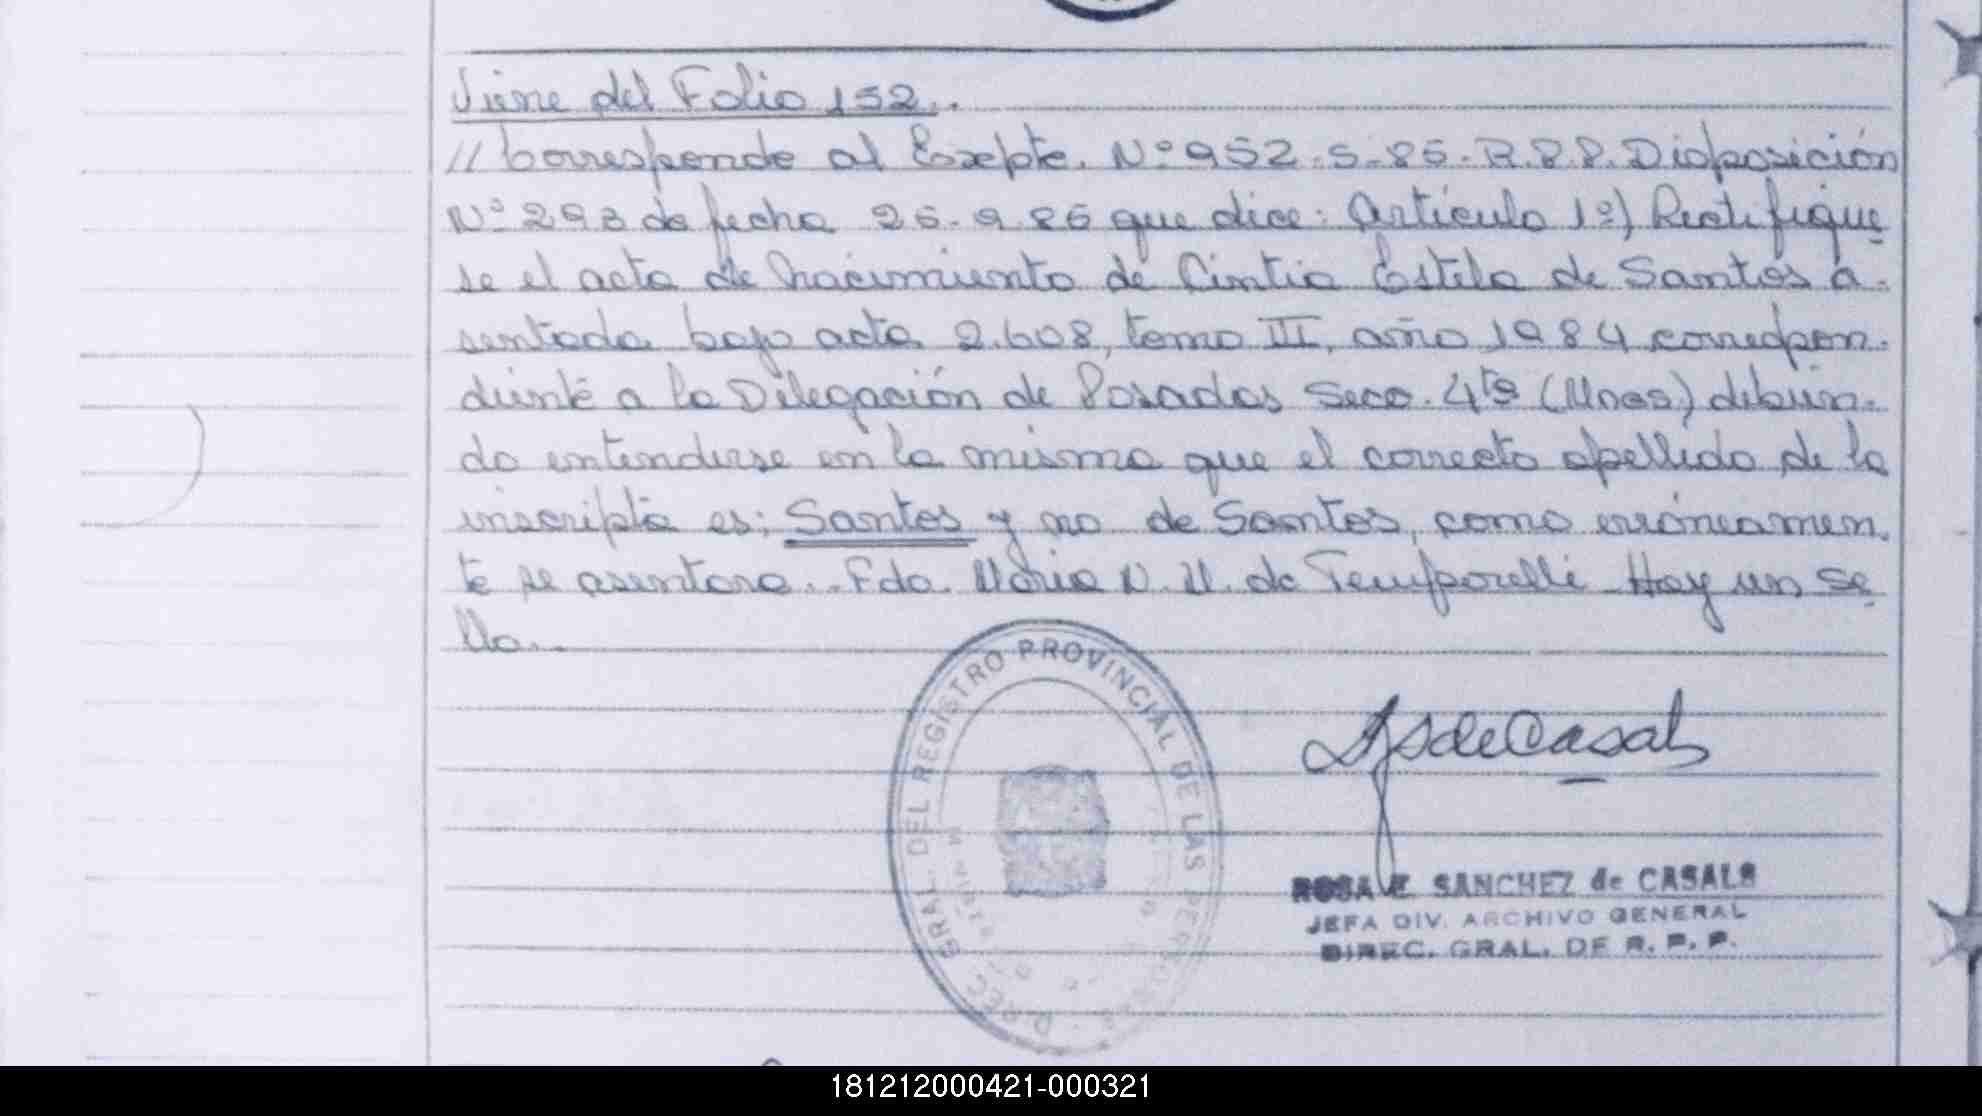 Viene del Folio 152..
// Corresponde al Expte. Nº 952-S-85-R.P.P. Disposición
Nº 293 de fecha 25-9-86 que dice: Artículo 1º) Rectifique
se el acta de Nacimiento de Cintia Estela de Santos a-
sentada bajo acta 2.608, tomo III, año 1984 correspon-
diente a la Delegación de Posadas Secc. 4ta (Mnes) debien-
do entenderse en la misma que el correcto apellido de la
inscripta es: Santos y no de Santos, como erróneamen-
te se asentara.. Fdo. Maria N. M. de Temporelli Hay un se
llo..
DIREC. GRAL. DEL REGISTRO PROVINCIAL DE LAS PERSONAS
de Casals
ROSA E. SANCHEZ de CASALS
JEFA DIV. ARCHIVO GENERAL
DIREC. GRAL. DE R. P. P.
181212000421-000321